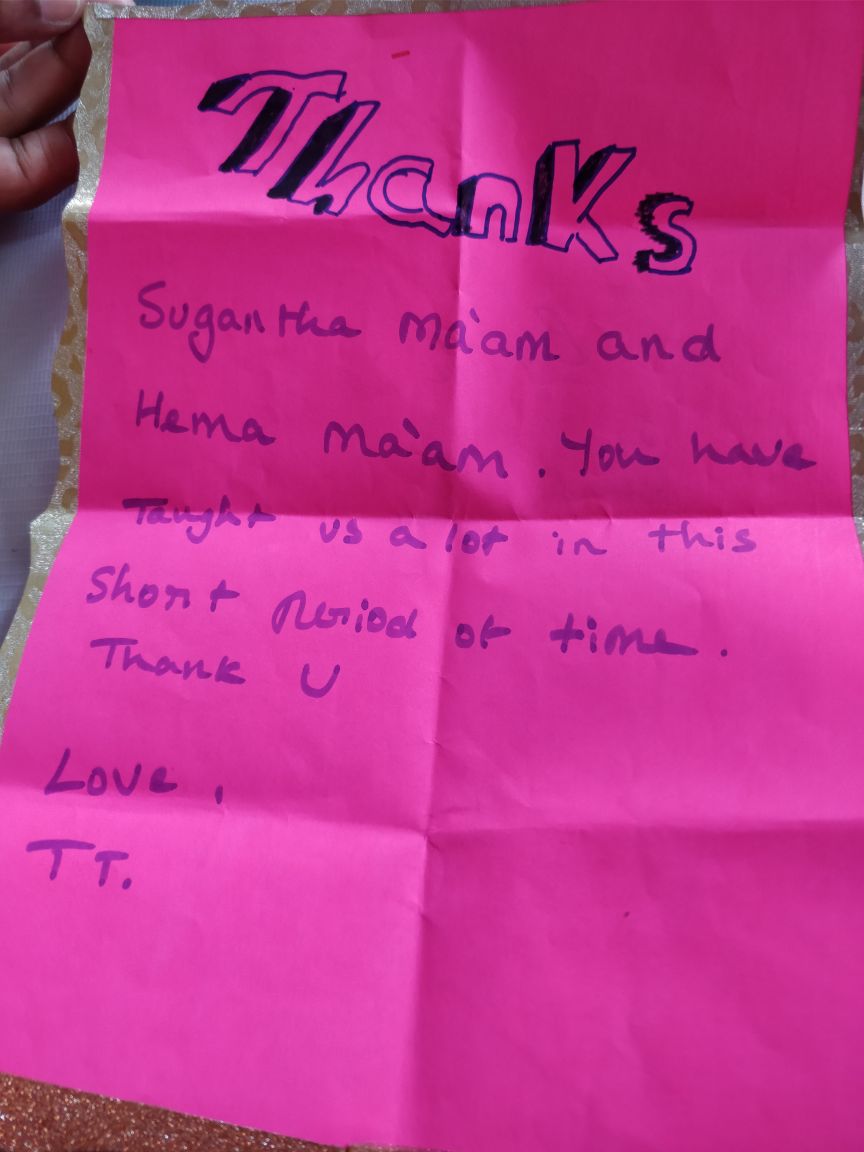 Thanks
Sugantha Ma'am and
Hema Ma'am. You have
Taught us a lot in this
Short Period of time.
Thank U
Love,
TT.